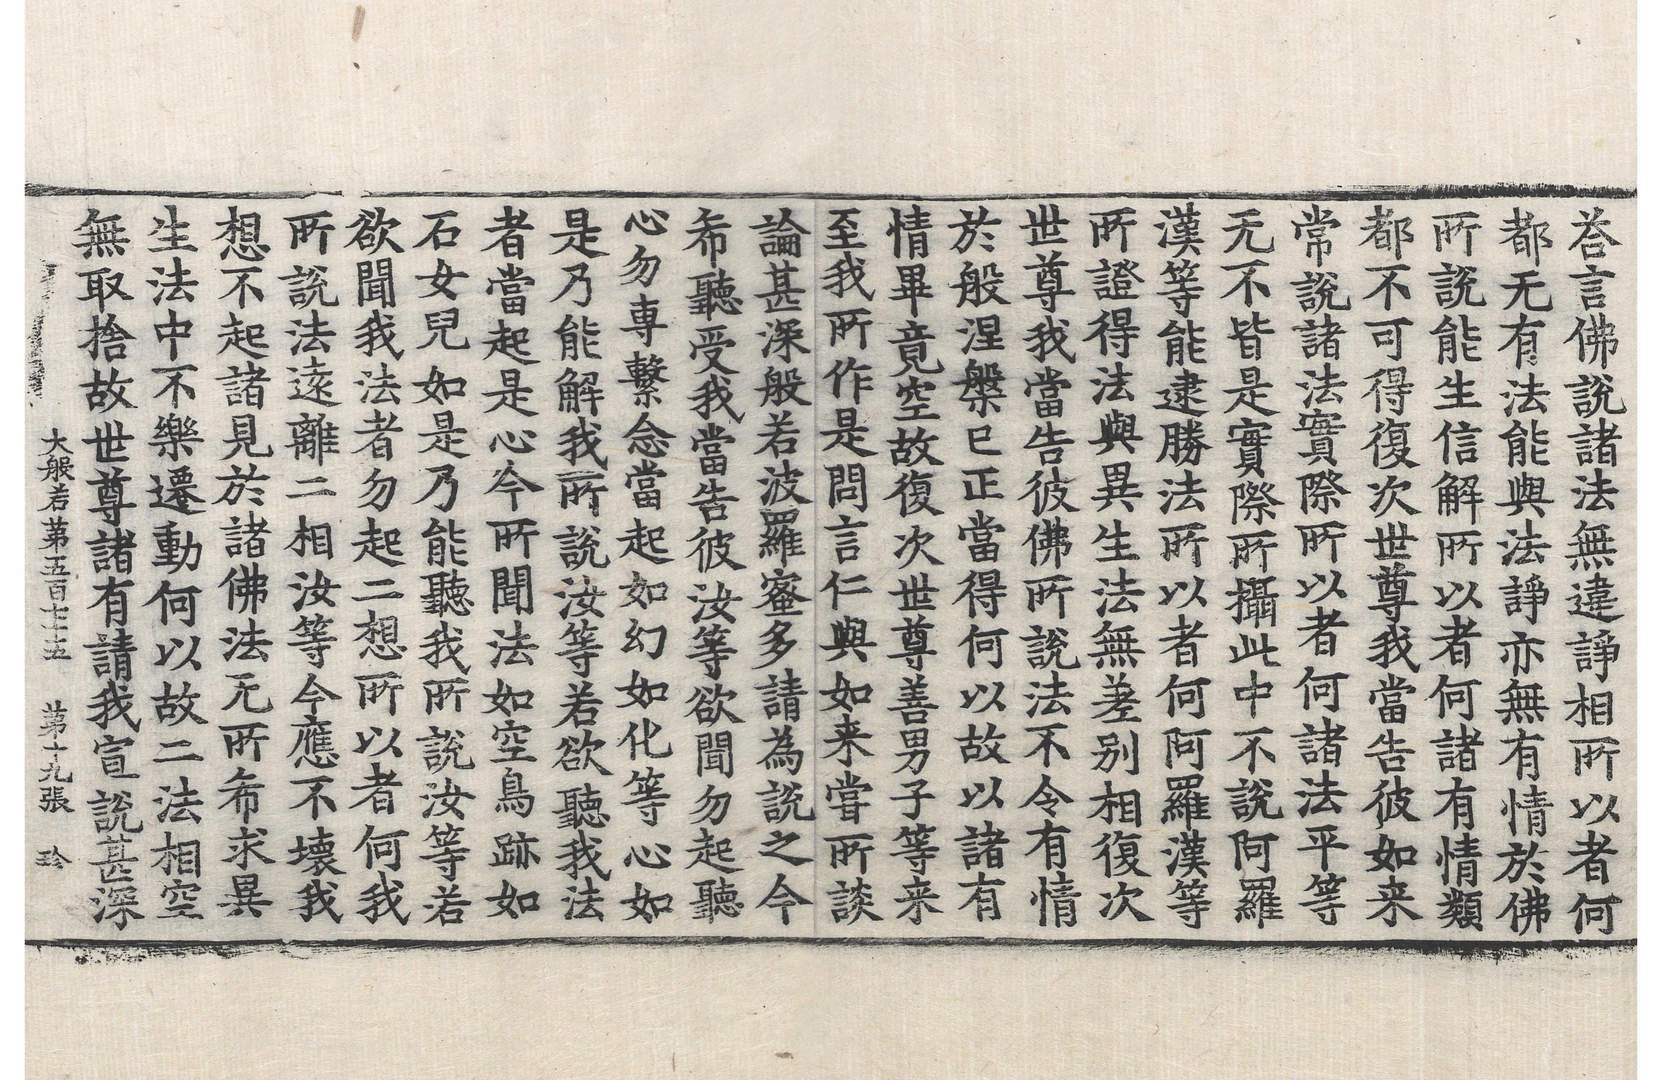 荅言佛說諸法無違諍相所以者何
都无有法能與法諍亦無有情於佛
所說能生信解所以者何諸有情類
都不可得復次世尊我當告彼如来
常說諸法實際所以者何諸法平等
无不皆是實際所攝此中不說阿羅
漢等能逮勝法所以者何阿羅漢等
所證得法與異生法無差别相復次
世尊我當告彼佛所說法不令有情
於般涅槃已正當得何以故以諸有
情畢竟空故復次世尊善男子等来
至我所作是問言仁與如来甞所談
論甚深般若波羅蜜多請為說之今
希聽受我當告彼汝等欲聞勿起聽
心勿専繫念當起如幻如化等心如
是乃能解我所說汝等若欲聽我法
者當起是心今所聞法如空鳥跡如
石女兒如是乃能聽我所說汝等若
欲聞我法者勿起二想所以者何我
所說法遠離二相汝等今應不壞我
想不起諸見於諸佛法无所希求異
生法中不樂遷動何以故二法相空
無取捨故世尊諸有請我宣說甚深
大般若第五百七十五　第十九張　珍